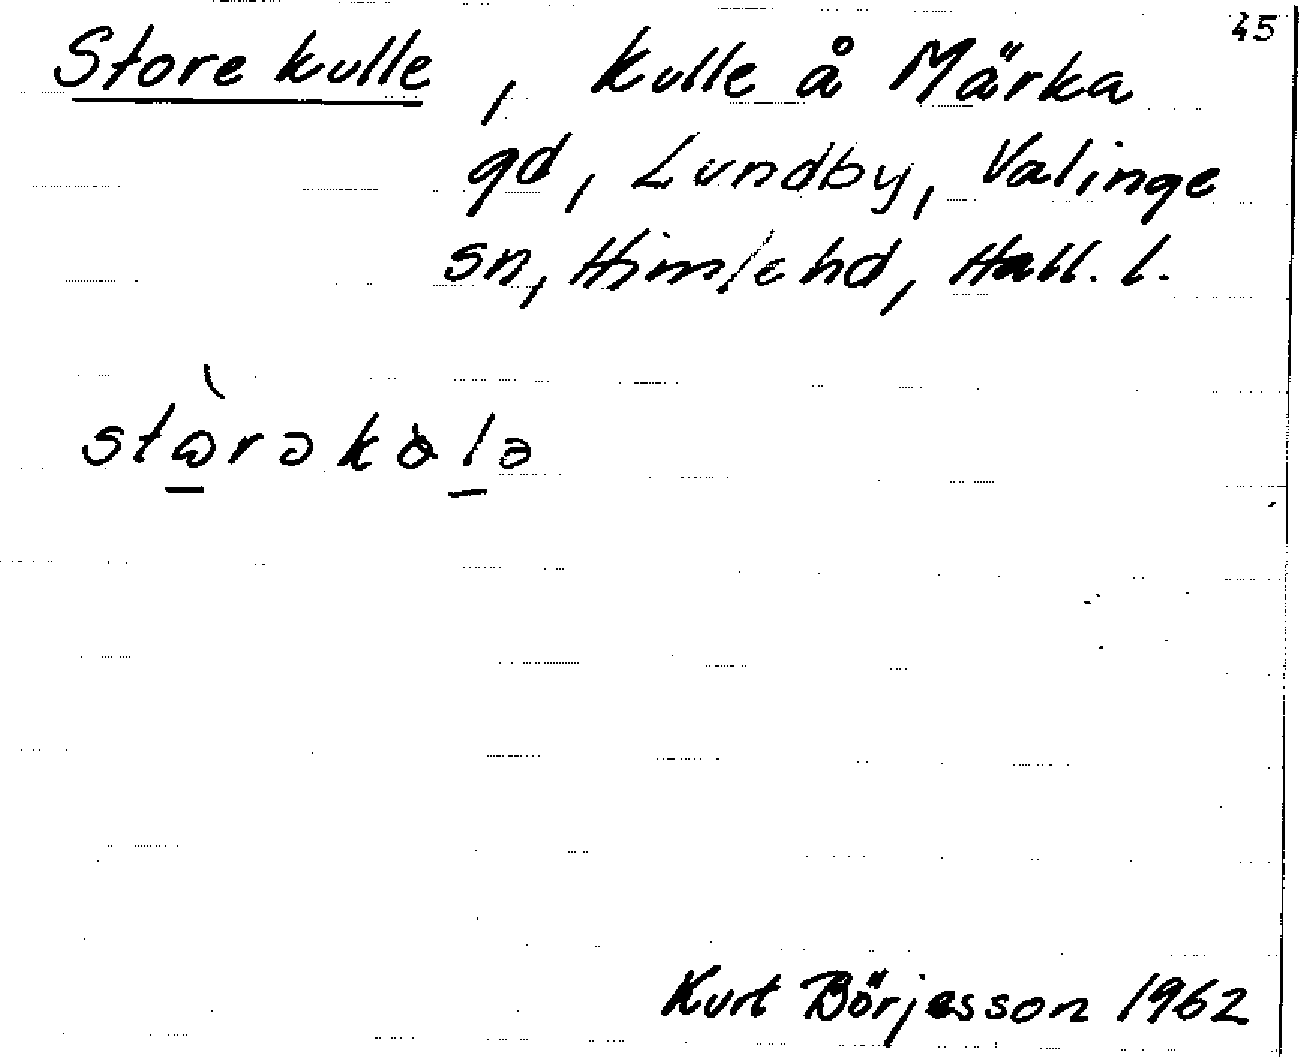 45
Store kulle, kulle å Märka
gd, Lundby, Valinge
sn, Himle hd, Hall. l.
Kurt Börjesson 1962